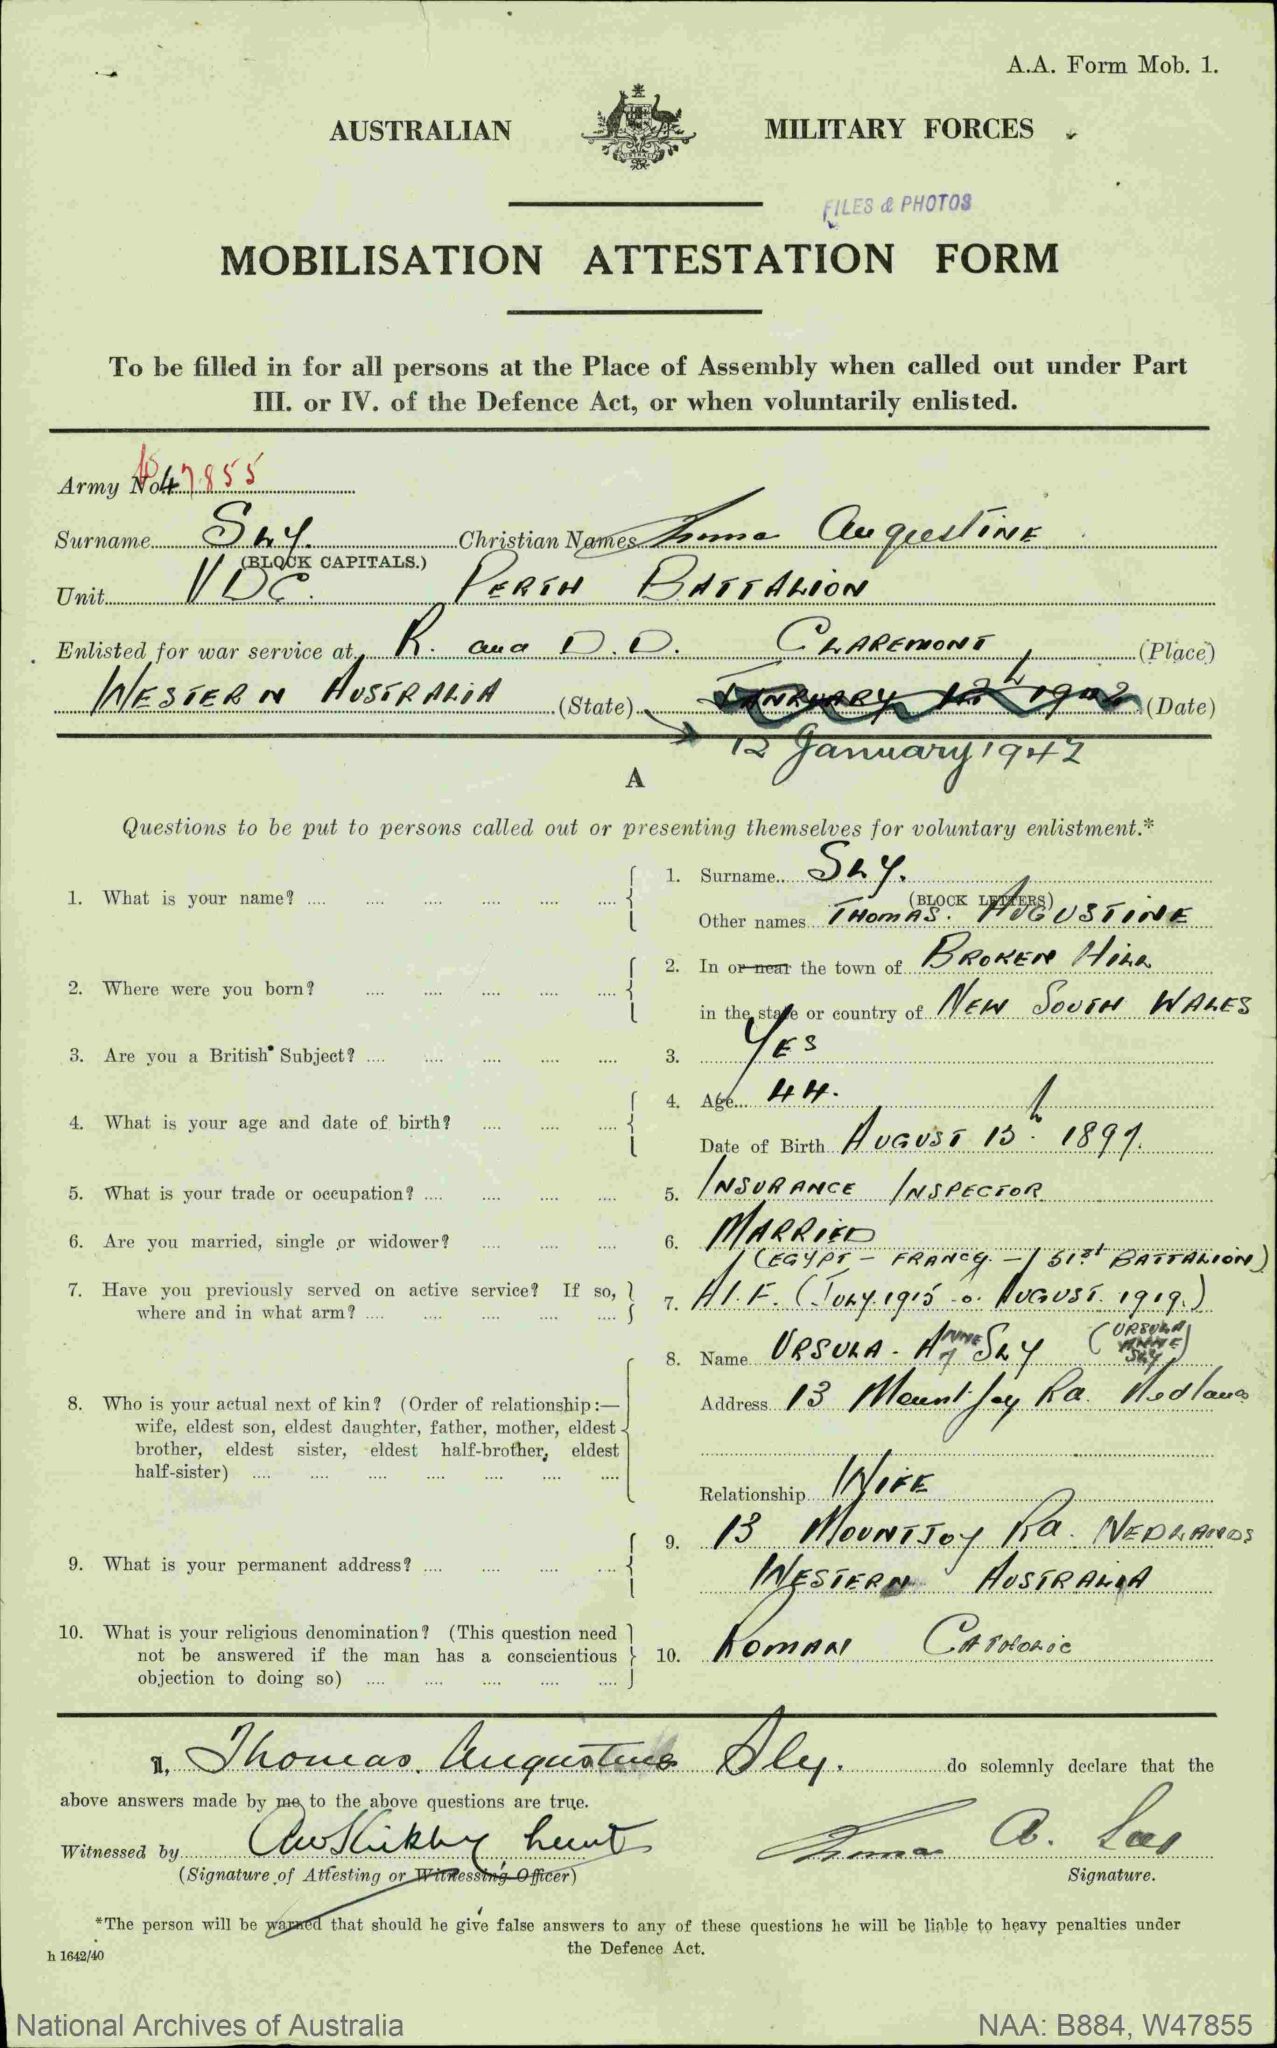 A.A. Form Mob. 1.
AUSTRALIAN MILITARY FORCES
FILES & PHOTOS
MOBILISATION ATTESTATION FORM
To be filled in for all persons at the Place of Assembly when called out under Part
III. or IV. of the Defence Act, or when voluntarily enlisted.
Army No. 47855
Surname SLY. Christian Names Thomas AUGUSTINE
(BLOCK CAPITALS.)
Unit VDC. PERTH BATTALION
Enlisted for war service at R. and D.D. CLAREMONT, (Place)
WESTERN AUSTRALIA (State) JANUARY 12th 1942 (Date)
12 January 1942
A
Questions to be put to persons called out or presenting themselves for voluntary enlistment.*
1. What is your name? .... .... .... .... .... ....
1. Surname SLY.
(BLOCK LETTERS)
Other names THOMAS. AUGUSTINE
2. Where were you born? .... .... .... .... ....
2. In or near the town of BROKEN HILL
in the state or country of NEW SOUTH WALES
3. Are you a British Subject? .... .... .... .... ....
3. YES
4. What is your age and date of birth? .... .... ....
4. Age 44.
Date of Birth AUGUST 13th 1897.
5. What is your trade or occupation? .... .... .... ....
5. INSURANCE INSPECTOR
6. Are you married, single or widower? .... .... ....
6. MARRIED
(EGYPT – FRANCE – 51st BATTALION)
7. Have you previously served on active service? If so,
where and in what arm? .... .... .... .... ....
7. A.I.F. (JULY 1915 to AUGUST 1919.)
8. Who is your actual next of kin? (Order of relationship:—
wife, eldest son, eldest daughter, father, mother, eldest
brother, eldest sister, eldest half-brother, eldest
half-sister) .... .... .... .... .... .... ....
8. Name URSULA ANNE SLY (URSULA
ANNE
SLY)
Address 13 Mountjoy Rd. Nedlands
Relationship WIFE
9. What is your permanent address? .... .... .... ....
9. 13 MOUNTJOY Rd. NEDLANDS
WESTERN AUSTRALIA
10. What is your religious denomination? (This question need
not be answered if the man has a conscientious
objection to doing so) .... .... .... .... ....
10. ROMAN CATHOLIC
I, Thomas. Augustine Sly. do solemnly declare that the
above answers made by me to the above questions are true.
Witnessed by Kirkby Lieut Thomas A. Sly
(Signature of Attesting or Witnessing Officer) Signature.
*The person will be warned that should he give false answers to any of these questions he will be liable to heavy penalties under
the Defence Act.
h 1642/40
National Archives of Australia NAA: B884, W47855